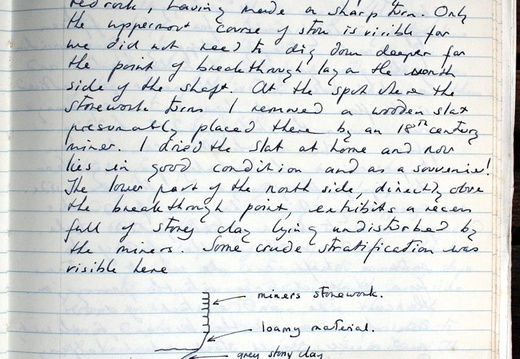 bedrock, having made a sharp turn. Only
the uppermost course of stone is visible for
we did not need to dig down deeper for
the point of breakthrough lay on the north
side of the shaft. At the spot where the
stonework turns I removed a wooden slat
presumably placed there by an 18th century
miner. I dried the slat at home and now
lies in good condition and as a souvenir!
The lower part of the north side, directly above
the breakthrough point, exhibits a recess
full of stoney clay lying undisturbed by
the miners. Some crude stratification was
visible here
miners stonework.
loamy material.
grey stony clay